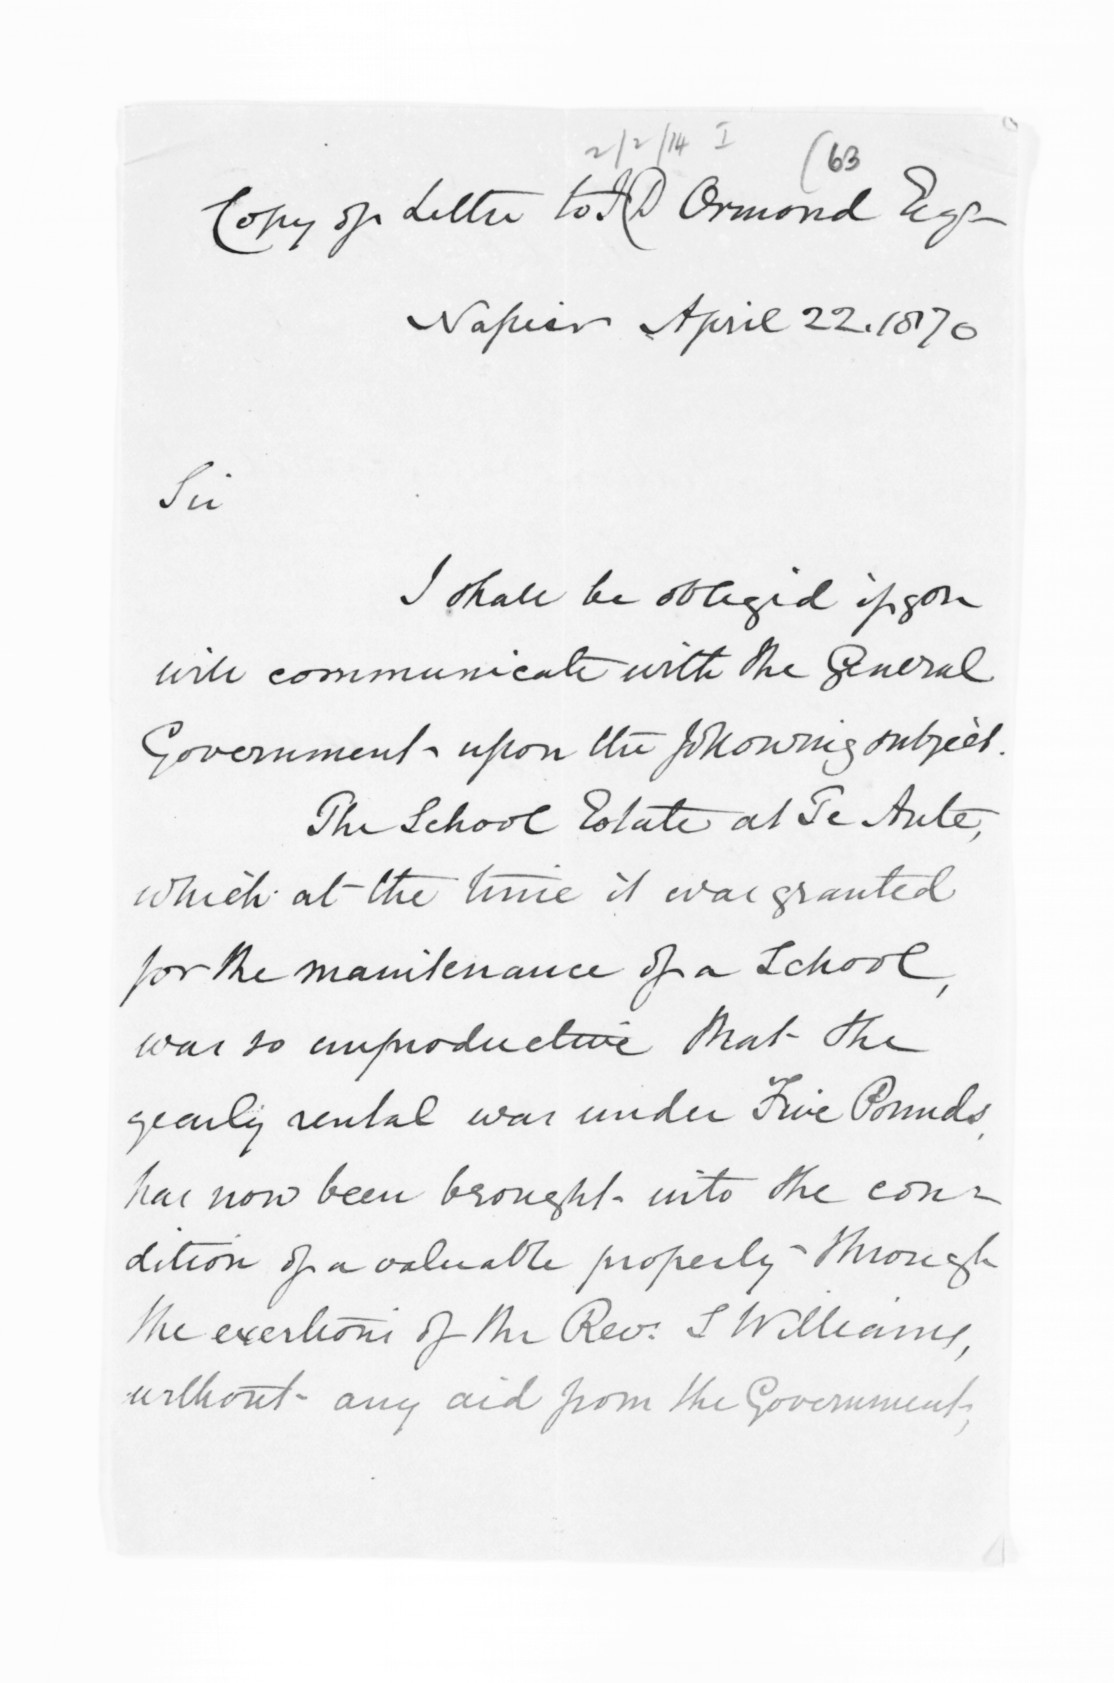 2/2/14 I
(63
Copy of Letter to J D Ormond Esqr
Napier April 22. 1870
Sir
I shall be obliged if you
will communicate with the General
Government upon the following subject.
The School Estate at Te Aute,
which at the time it was granted
for the maintenance of a School,
was so unproductive that the
yearly rental was under Five Pounds,
has now been brought into the con-
dition of a valuable property through
the exertions of the Rev: S Williams,
without any aid from the Government,